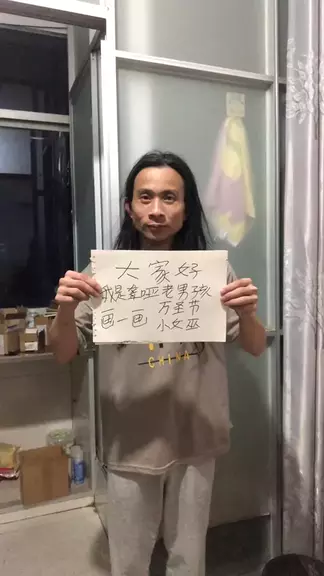 大家好
我是聋哑老男孩
画一画 万圣节
小女巫
CHINA